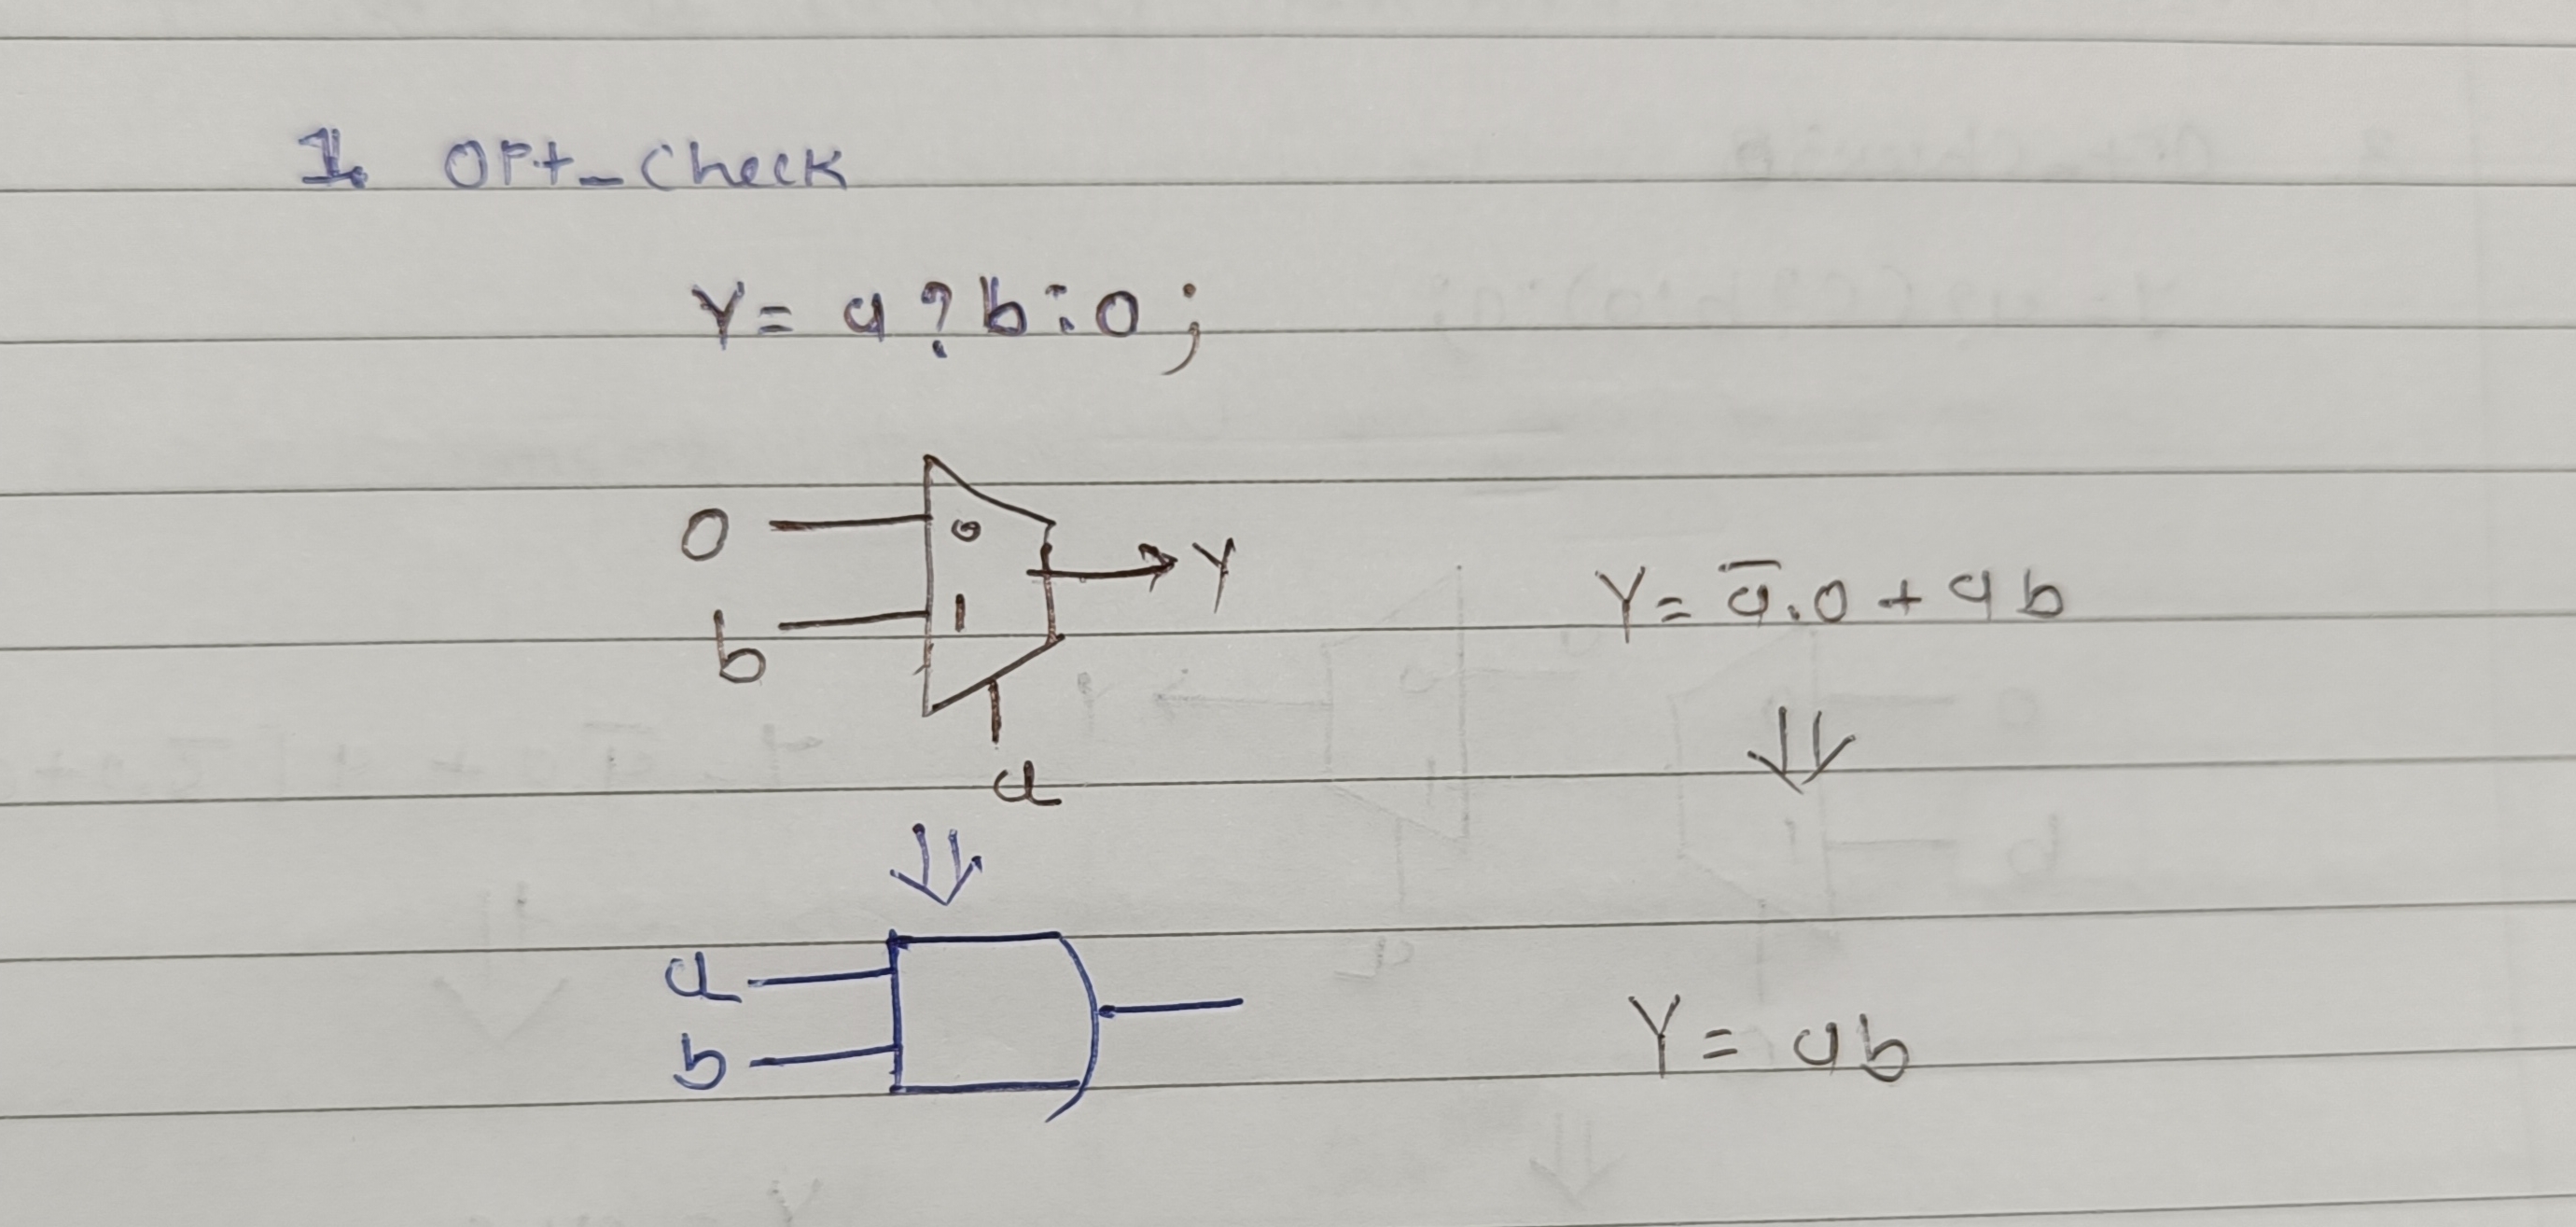 1. OPt_Check
Y= a?b:0;
0
0
Y
b
1
a
Y= a̅.0 + ab
a
b
Y = ab